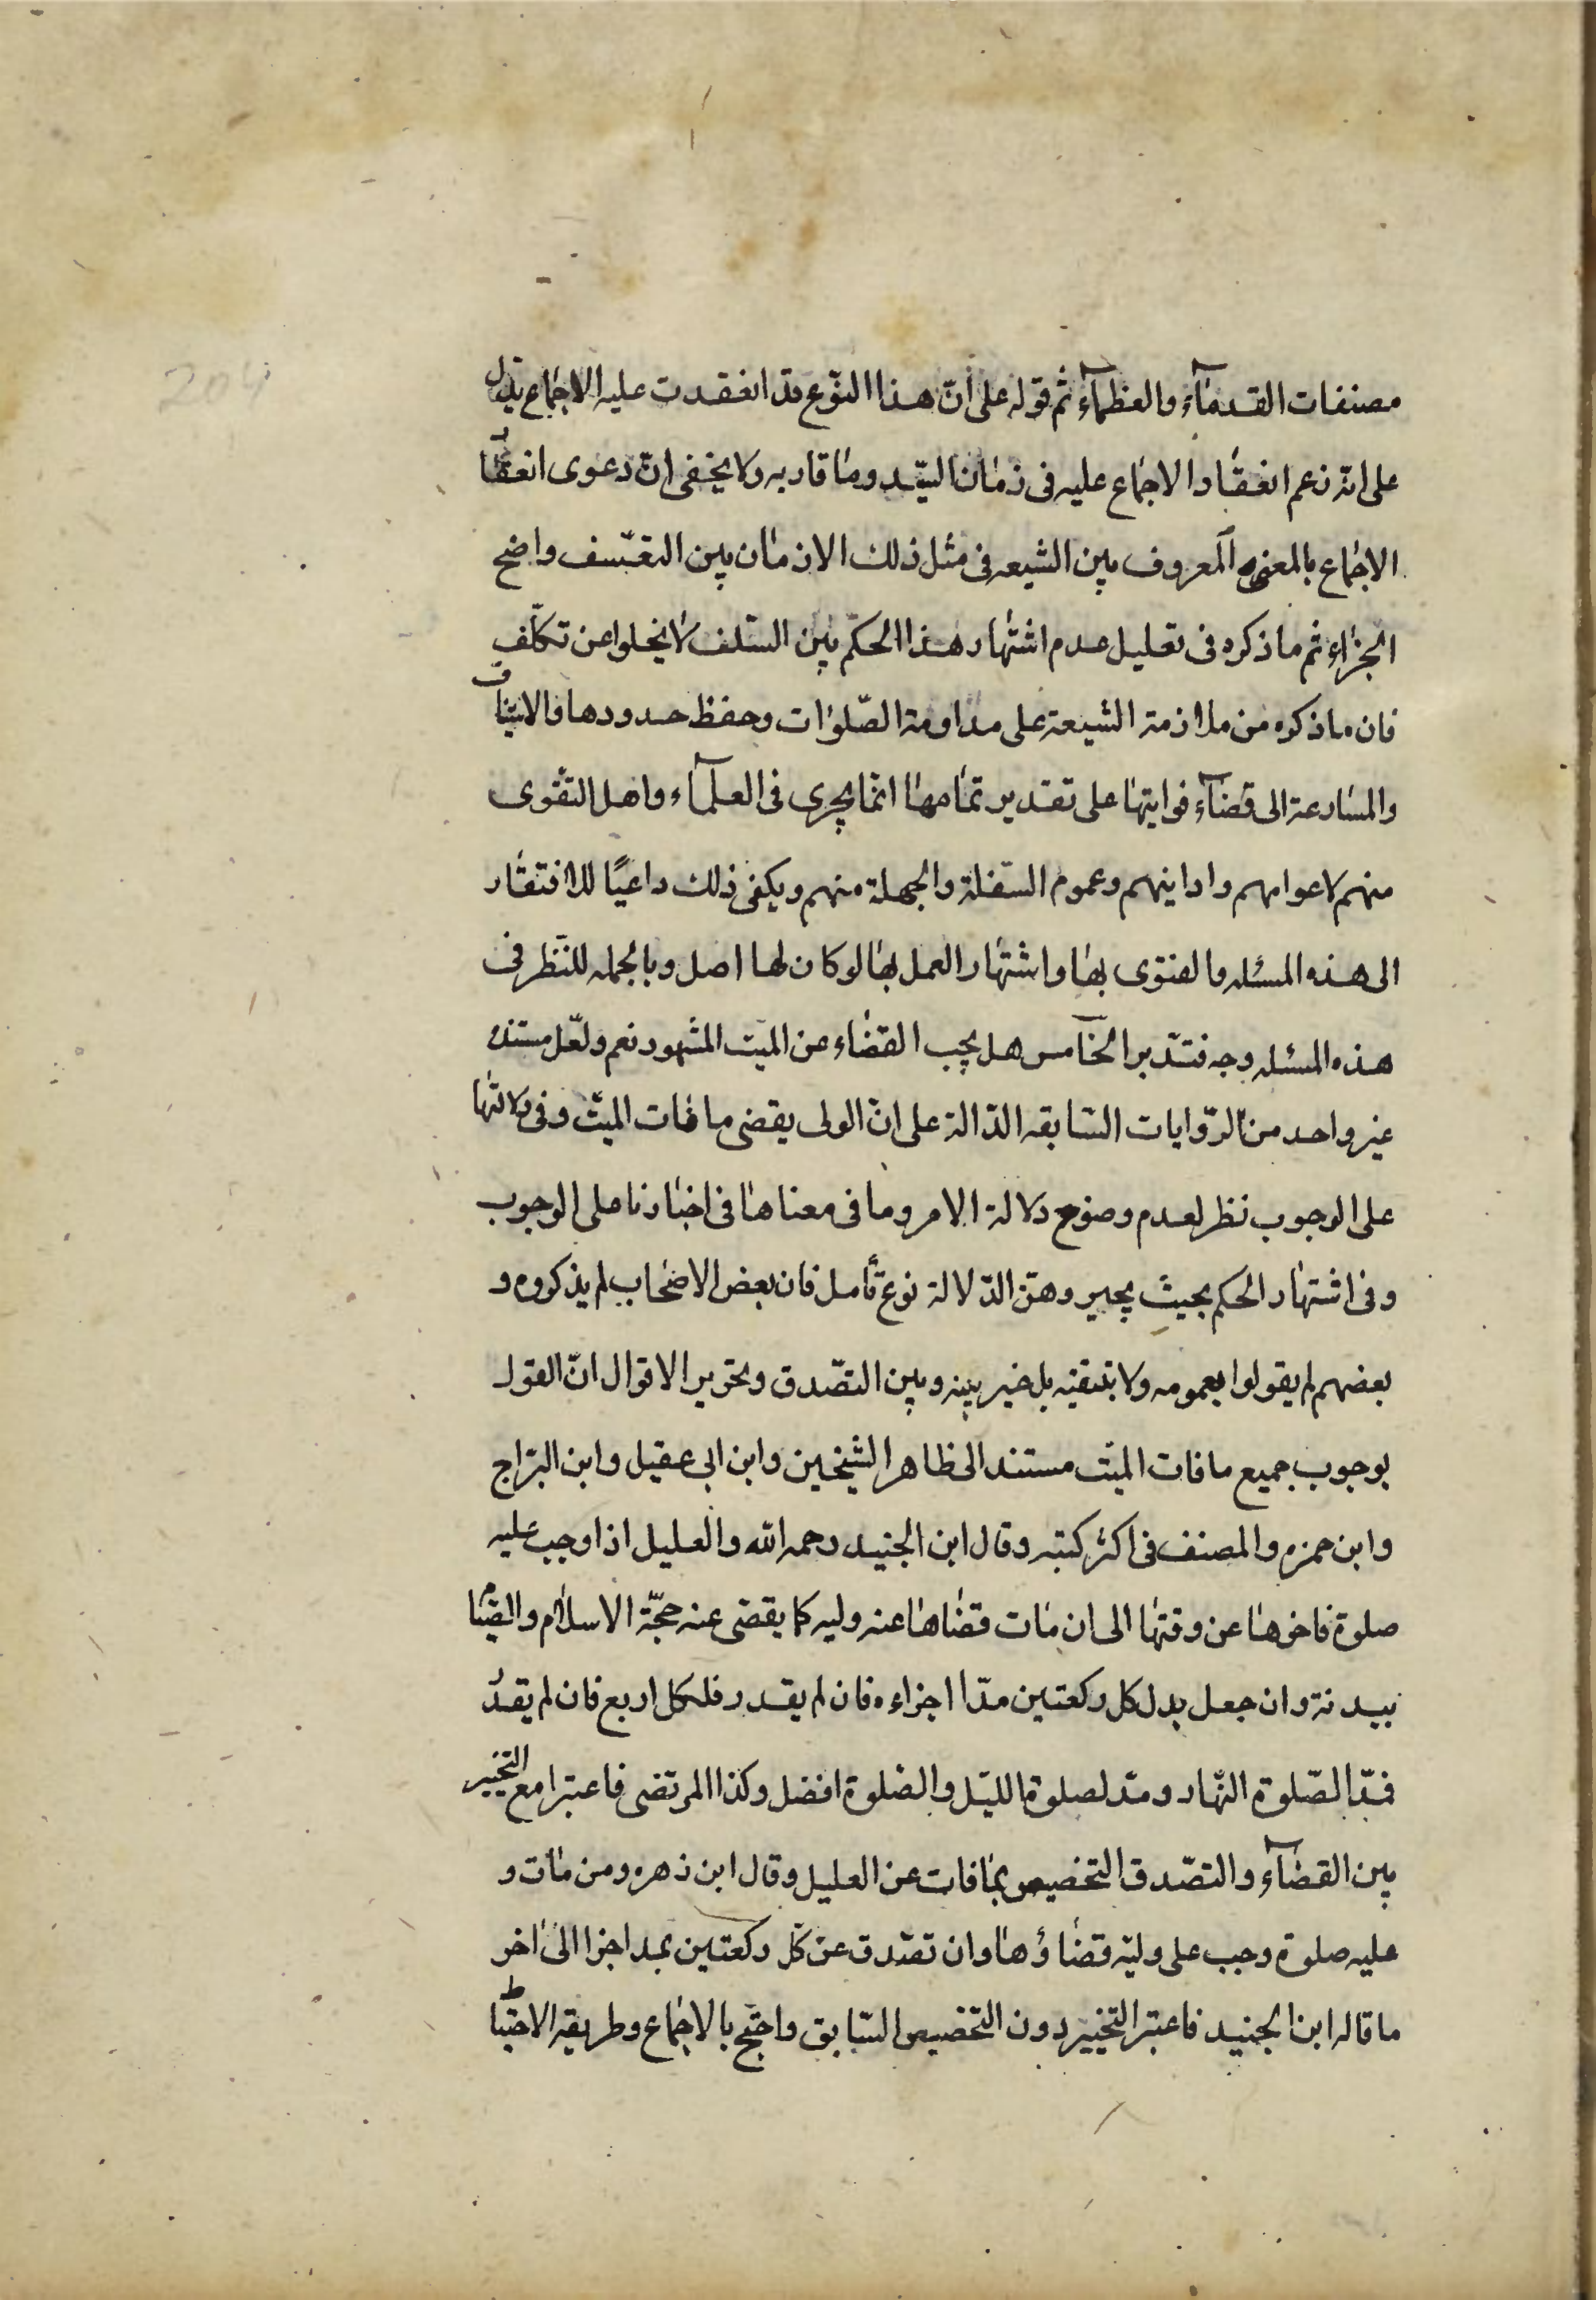 204
مصنفات القدمآء والعظمآء ثم قوله على انّ هذا النّوع قد انعقدت عليه الاجماع يدل
على انّه زعم انعقاد الاجماع عليه فى زمان السّيّد وما قاربه ولا يخفى انّ دعوى انعقاد
الاجماع بالمعنى المعروف بين الشيعه فى مثل ذلك الازمان بين التعسّف واضح
الجزاء ثم ما ذكره فى تعليل عدم اشتهار هذا الحكم بين السّلف لا يخلوا عن تكلّف
فان ما ذكره من ملازمة الشيعة على مداومة الصّلوات وحفظ حدودها والاستيناف
والمسارعة الى قضآء فوايتها على تقدير تمامها انّما يجرى فى العلمآء واهل التقوى
منهم لا عوامهم وادانيهم وعموم السّفلة والجهلة منهم ويكفى ذلك داعيًا للافتقار
الى هذه المسئله والفتوى بها واشتهار العمل بها لو كان لها اصل وبالجمله للنّظر فى
هذه المسئله وجه فتدّبر الخامس هل يجب القضاء عن الميت المشهور نعم ولعّل مستنده
غير واحد من الرّوايات السّابقه الدّالة على انّ الولى يقضى ما فات الميّت وفى دلالتها
على الوجوب نظر لعدم وضوح دلالة الامر وما فى معناها فى اخبارنا على الوجوب
وفى اشتهار الحكم بحيث يجبر وهن الدّلالة نوع تأمل فان بعض الاصحاب لم يذكروه و
بعضهم لم يقولوا بعمومه ولا بتعيّنه بل خير بينه وبين التصّدق وتحرير الاقوال انّ القول
بوجوب جميع ما فات الميّت مستند الى ظاهر الشيخين وابن ابى عقيل وابن البرّاج
وابن حمزه والمصنف فى اكثر كتبه وقال ابن الجنيد رحمه الله والعليل اذا وجب عليه
صلوة فاخرها عن وقتها الى ان مات قضاها عنه وليه كما يقضى عنه حجّة الاسلام والصّيام
ببدنة وان جعل بدل كل ركعتين مدّا اجزاءه فان لم يقدر فلكل اربع فان لم يقدر
فمدّ الصّلوة النّهار ومدّ لصلوة الليّل والصّلوة افضل وكذا المرتضى فاعتبرا مع التخيير
بين القضآء والتصّدق التخصيص بما فات عن العليل وقال ابن زهره ومن مات و
عليه صلوة وجب على وليّه قضاؤها وان تصّدق عن كلّ ركعتين بمد اجزا الى اخر
ما قاله ابن الجنيد فاعتبر التخيير دون التخصيص السّابق واحتج بالاجماع وطريقه الاحتياط